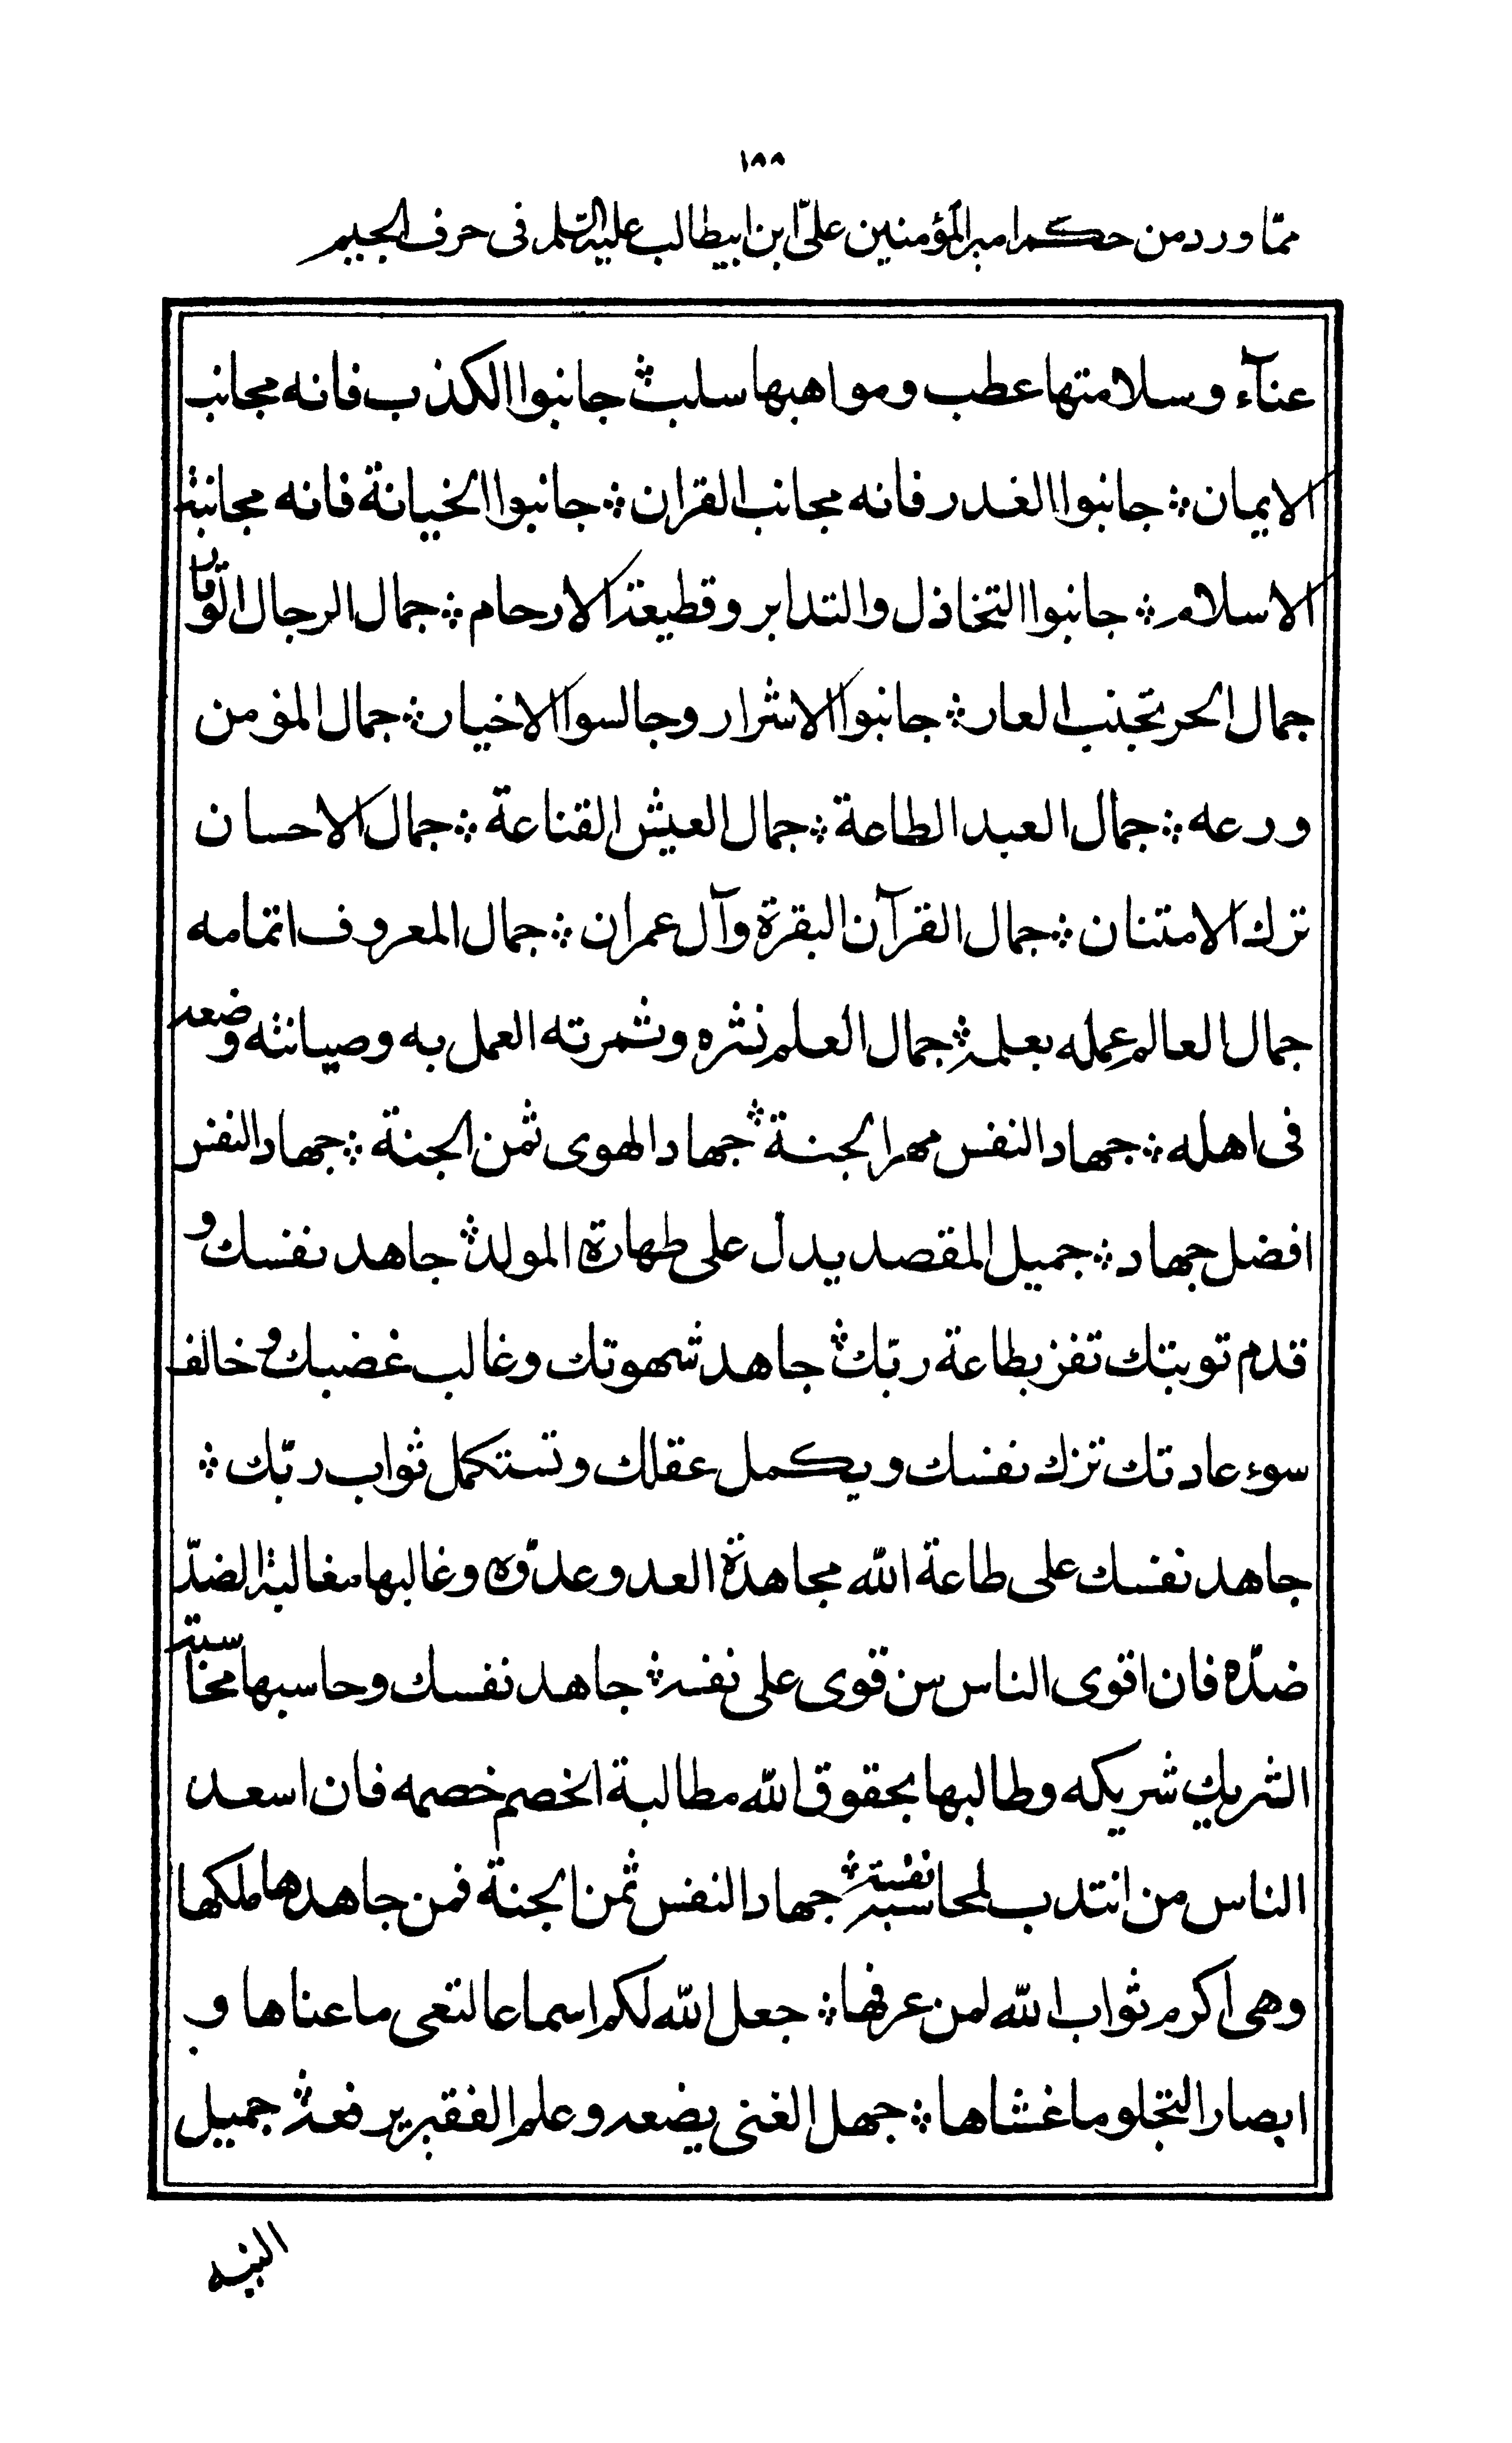 ١٨٨
ممّا ورد من حكم امير المؤمنين علىّ ابن ابيطالب عليه السّلم فى حرف الجيم
عنآء وسلامتها عطب ومواهبها سلب ۞ جانبوا الكذب فانه مجانب
الايمان ۞ جانبوا الغدر فانه مجانب القران ۞ جانبوا الخيانة فانه مجانبة
الاسلام ۞ جانبوا التخاذل والتدابر وقطيعة الارحام ۞ جمال الرجال الوقار
جمال الحر تجنب العار ۞ جانبوا الاشرار وجالسوا الاخيار ۞ جمال المؤمن
ورعه ۞ جمال العبد الطاعة ۞ جمال العيش القناعة ۞ جمال الاحسان
ترك الامتنان ۞ جمال القرآن البقرة وآل عمران ۞ جمال المعروف اتمامه
جمال العالم عمله بعلمه ۞ جمال العلم نشره وثمرته العمل به وصيانته وضعه
فى اهله ۞ جهاد النفس مهر الجنة ۞ جهاد الهوى ثمن الجنة ۞ جهاد النفس
افضل جهاد ۞ جميل المقصد يدل على طهارة المولد ۞ جاهد نفسك و
قدم توبتك تفز بطاعة ربّك ۞ جاهد شهوتك وغالب غضبك و خالف
سوء عادتك تزك نفسك ويكمل عقلك وتستكمل ثواب ربّك ۞
جاهد نفسك على طاعة الله مجاهدة العدو عدوّه وغالبها مغالبة الضدّ
ضدّه فان اقوى الناس من قوى على نفسه ۞ جاهد نفسك وحاسبها محاسبة
الشريك شريكه وطالبها بحقوق الله مطالبة الخصم خصمه فان اسعد
الناس من انتدب لمحاسبة نفسه ۞ جهاد النفس ثمن الجنة فمن جاهدها ملكها
وهى اكرم ثواب الله لمن عرفها ۞ جعل الله لكم اسماعا لتعى ما عناها و
ابصارا لتجلو ما غشاها ۞ جهل الغنى يضعه وعلم الفقير يرفعه ۞ جميل
النيه